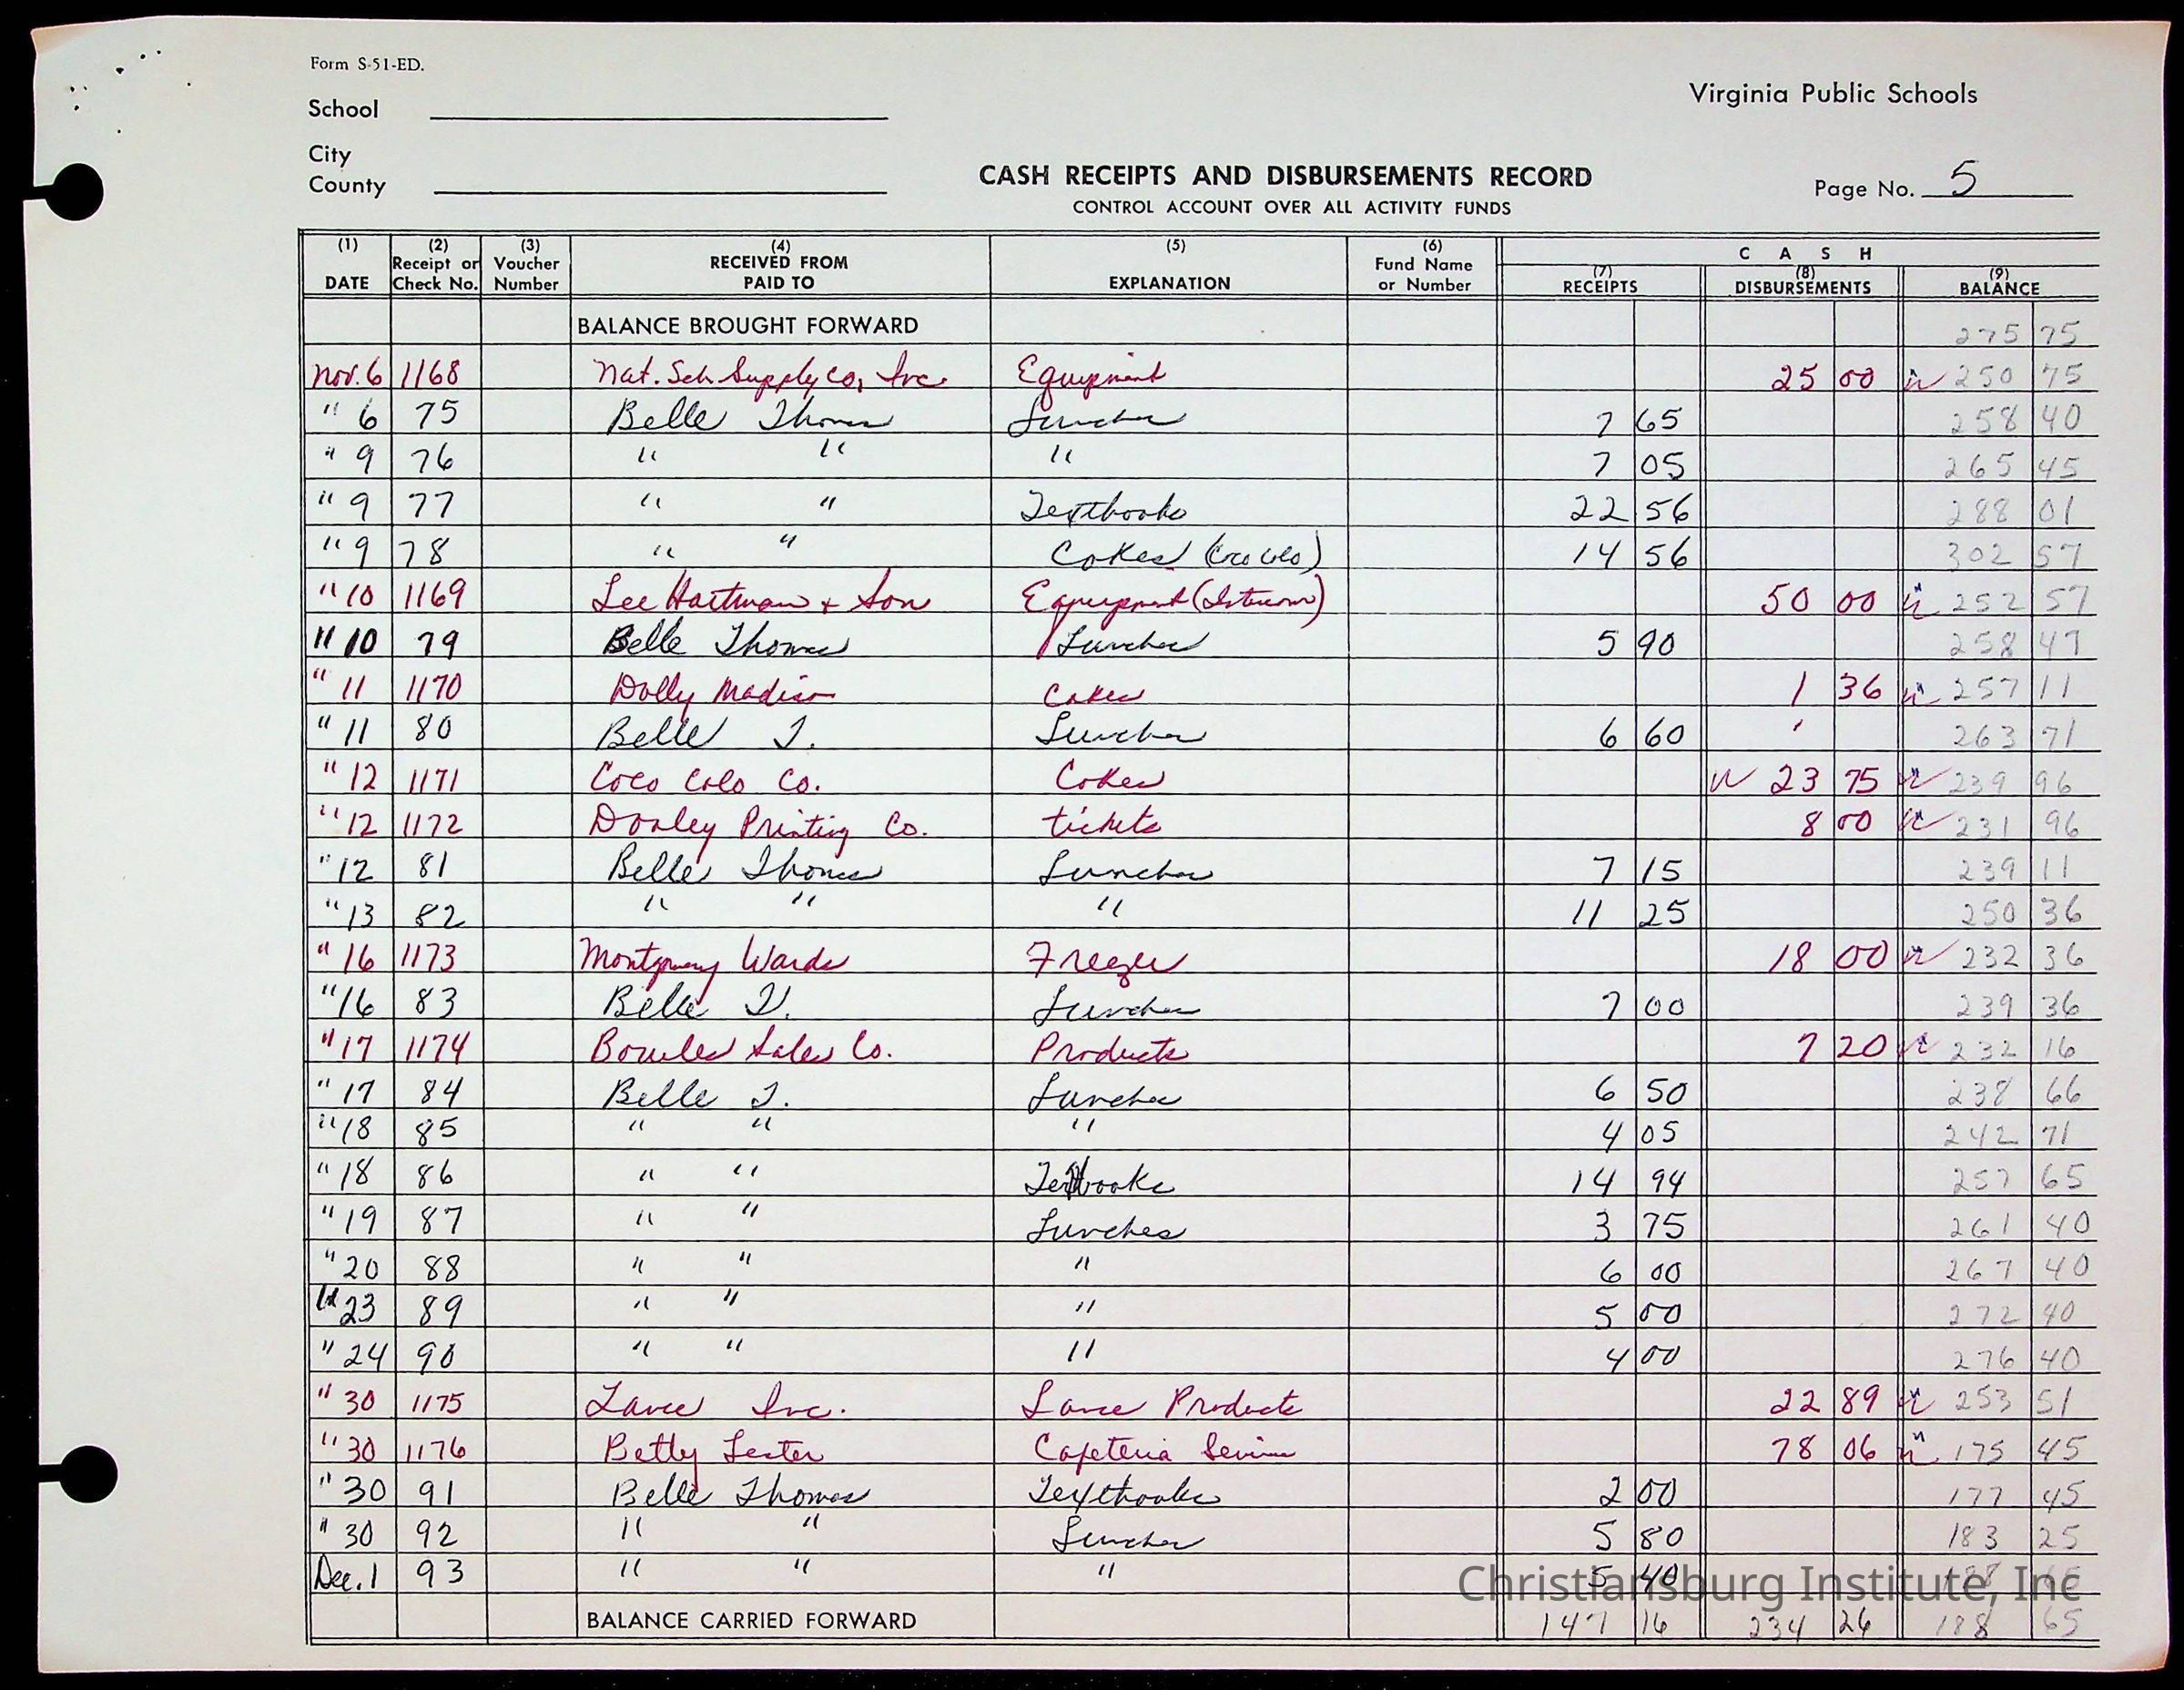 Form S-51-ED.
Virginia Public Schools
School
City
County
CASH RECEIPTS AND DISBURSEMENTS RECORD
CONTROL ACCOUNT OVER ALL ACTIVITY FUNDS
Page No. 5
(1) DATE (2) Receipt or Check No. (3) Voucher Number (4) RECEIVED FROM PAID TO (5) EXPLANATION (6) Fund Name or Number CASH (7) RECEIPTS (8) DISBURSEMENTS (9) BALANCE
BALANCE BROUGHT FORWARD 275 75
Nov. 6 1168 Nat. Sch. Supply Co, Inc. Equipment 25 00 250 75
" 6 75 Belle Thomas Lunches 7 65 258 40
" 9 76 " " " 7 05 265 45
" 9 77 " " Textbooks 22 56 288 01
" 9 78 " " Cokes (Coco Colo) 14 56 302 57
" 10 1169 Lee Hartman + Son Equipment (Intercom) 50 00 252 57
" 10 79 Belle Thomas Lunches 5 90 258 47
" 11 1170 Dolly Madison Cakes 1 36 257 11
" 11 80 Belle T. Lunches 6 60 263 71
" 12 1171 Coco Colo Co. Cokes 23 75 239 96
" 12 1172 Dooley Printing Co. tickets 8 00 231 96
" 12 81 Belle Thomas Lunches 7 15 239 11
" 13 82 " " " 11 25 250 36
" 16 1173 Montgomery Wards Freezer 18 00 232 36
" 16 83 Belle T. Lunches 7 00 239 36
" 17 1174 Bowles Sales Co. Products 7 20 232 16
" 17 84 Belle T. Lunches 6 50 238 66
" 18 85 " " " 4 05 242 71
" 18 86 " " Textbooks 14 94 257 65
" 19 87 " " Lunches 3 75 261 40
" 20 88 " " " 6 00 267 40
" 23 89 " " " 5 00 272 40
" 24 90 " " " 4 00 276 40
" 30 1175 Lance Inc. Lance Products 22 89 253 51
" 30 1176 Betty Lester Cafeteria 78 06 175 45
" 30 91 Belle Thomas Textbooks 2 00 177 45
" 30 92 " " Lunches 5 80 183 25
Dec. 1 93 " " " 5 40 188 65
Christiansburg Institute, Inc
BALANCE CARRIED FORWARD 147 16 234 26 188 65